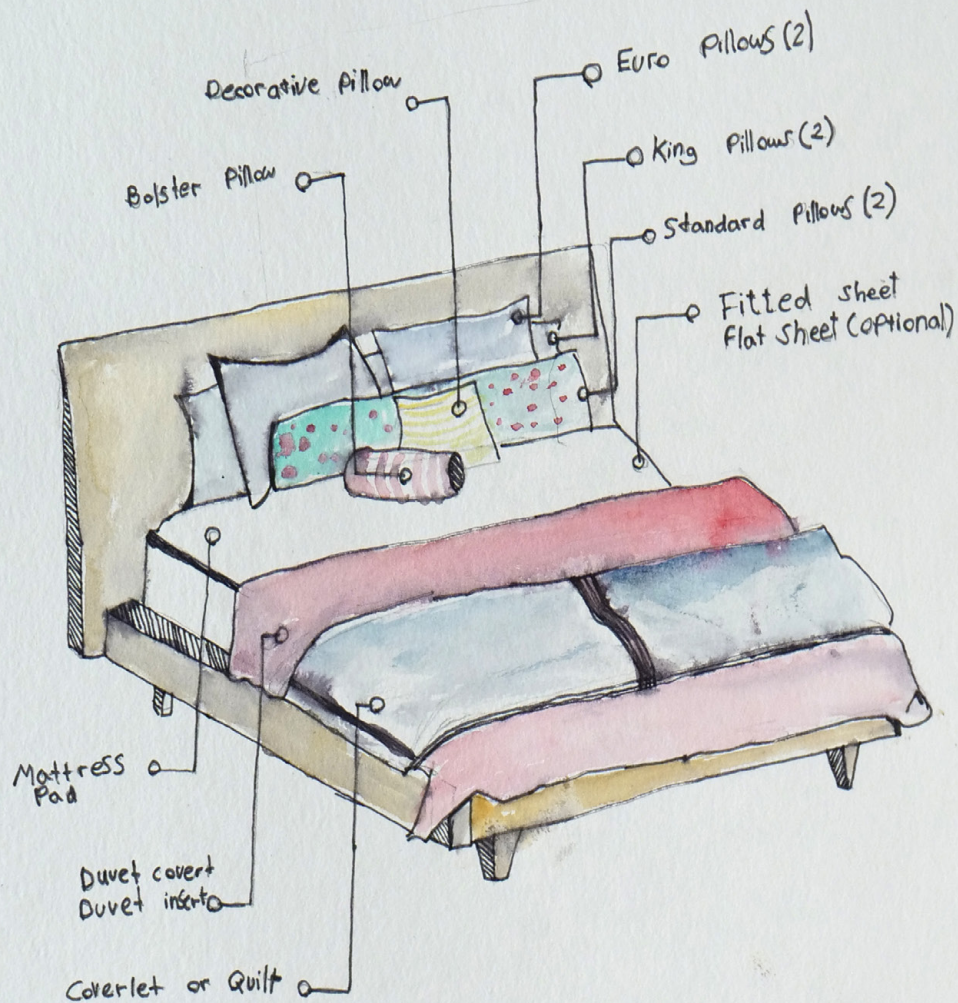 Decorative Pillow
Euro Pillows (2)
Bolster Pillow
King Pillows (2)
Standard Pillows (2)
Fitted sheet
Flat sheet (optional)
Mattress
Pad
Duvet covert
Duvet insert
Coverlet or Quilt